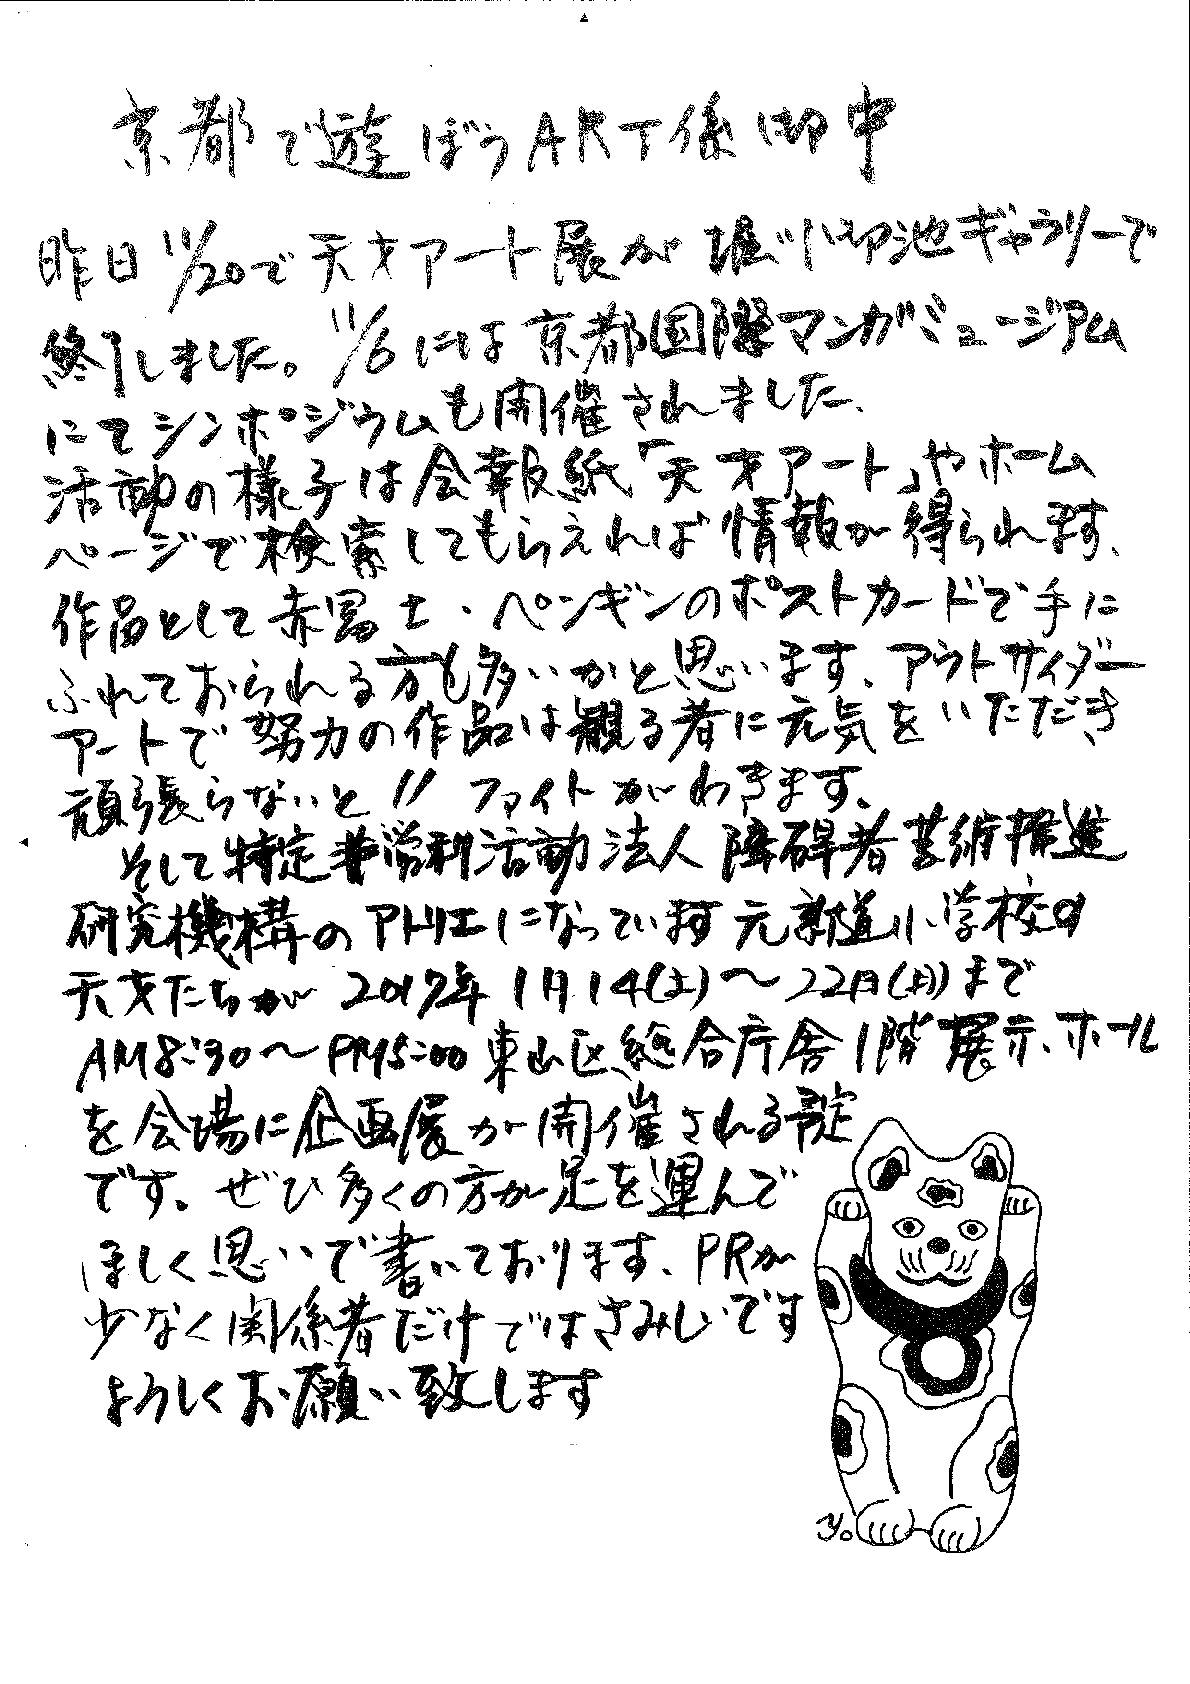 京都で遊ぼうART係御中
昨日11/20で天才アート展が堀川御池ギャラリーで
終了しました。11/6には京都国際マンガミュージアム
にてシンポジウムも開催されました、
活動の様子は会報紙「天才アート」やホーム
ページで検索してもらえれば情報が得られます、
作品として赤富士・ペンギンのポストカードで手に
ふれておられる方も多いかと思います、アウトサイダー
アートで努力の作品は観る者に元気をいただき
頑張らないと!! ファイトがわきます、
そして特定非営利活動法人障碍者芸術推進
研究機構のアトリエになっています元新道小学校の
天才たちが2017年1月14(土)〜22日(日)まで
AM8:30〜PM5:00東山区総合庁舎1階展示、ホール
を会場に企画展が開催される予定
です、ぜひ多くの方が足を運んで
ほしく思いで書いております、PRが
少なく関係者だけではさみしいです
よろしくお願い致します
y。